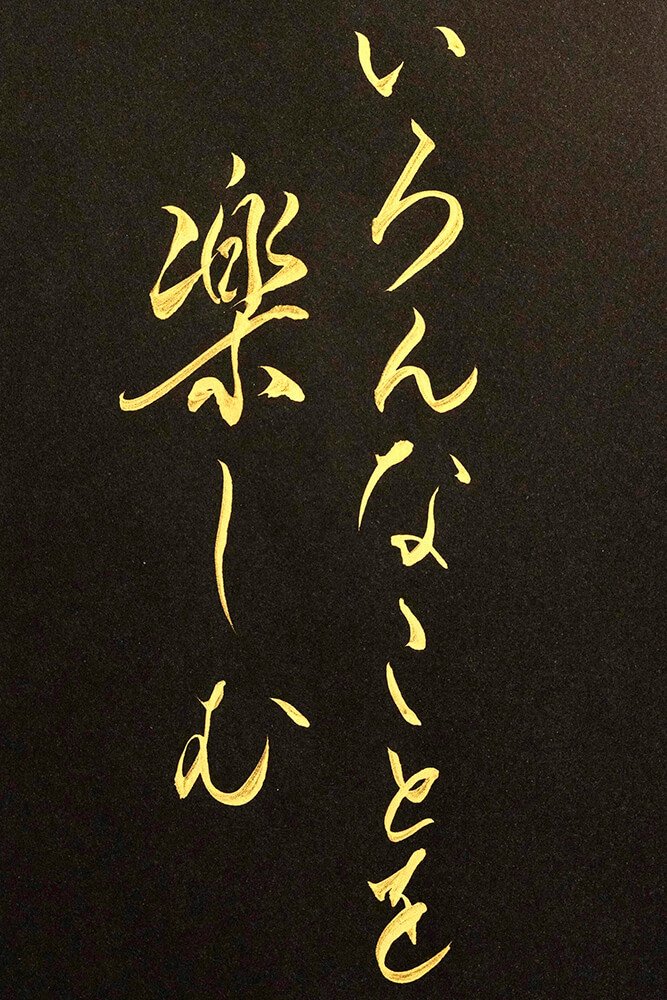 いろんなことを
楽しむ